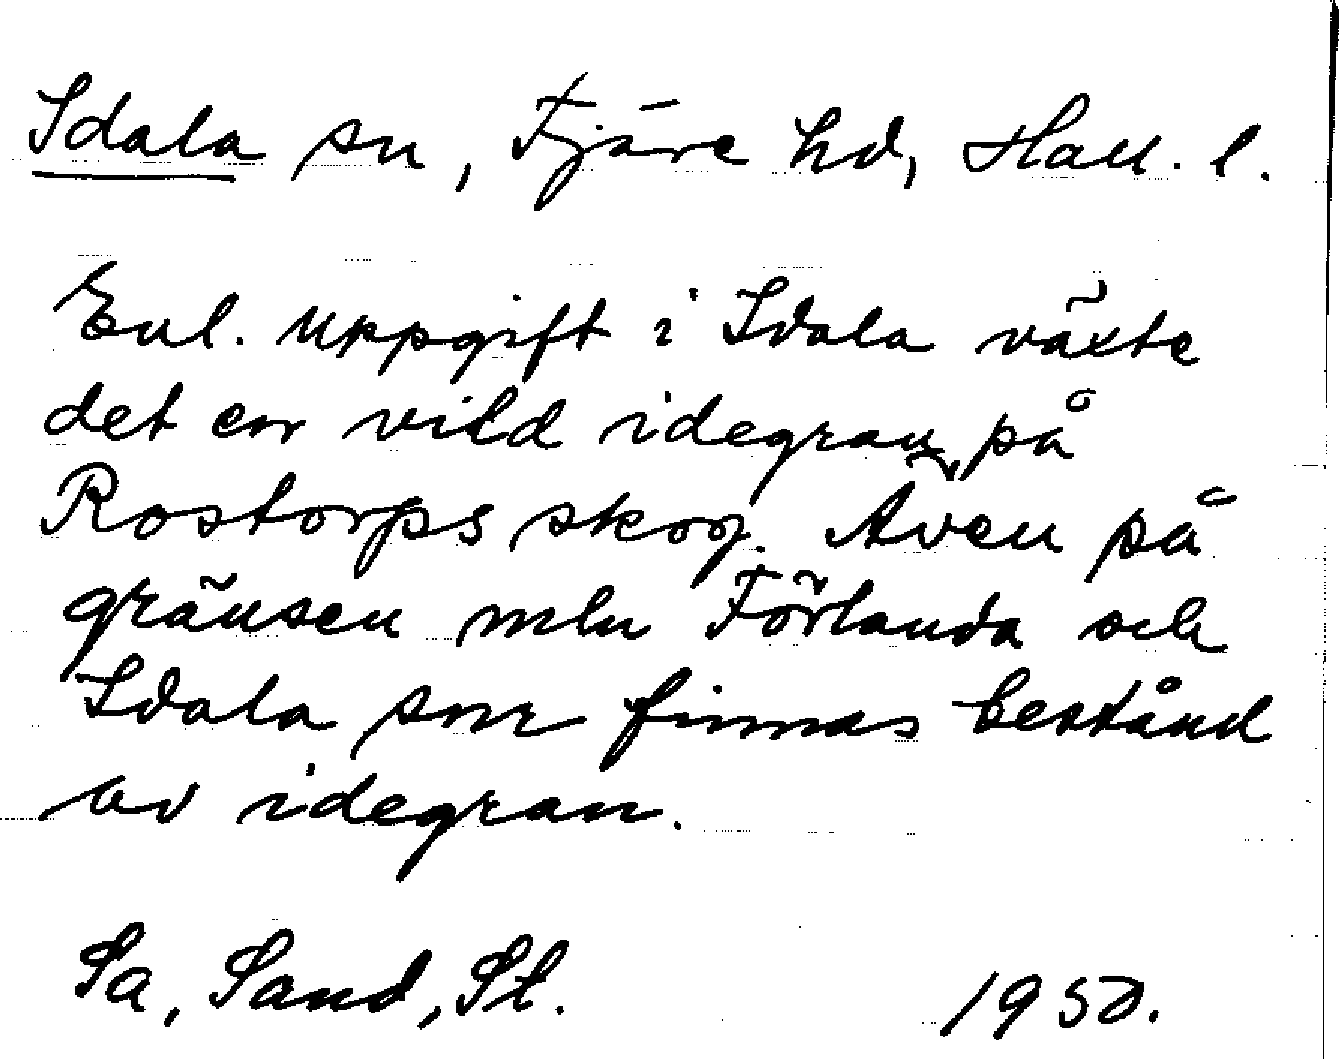 Idala sn, Fjäre hd, Hall. l.
Enl. uppgift i Idala växte
det en vild idegran på
Rostorps skog. Även på
gränsen mln Förlanda och
Idala sne finnas bestånd
av idegran.
Sa, Sand, St. 1950.